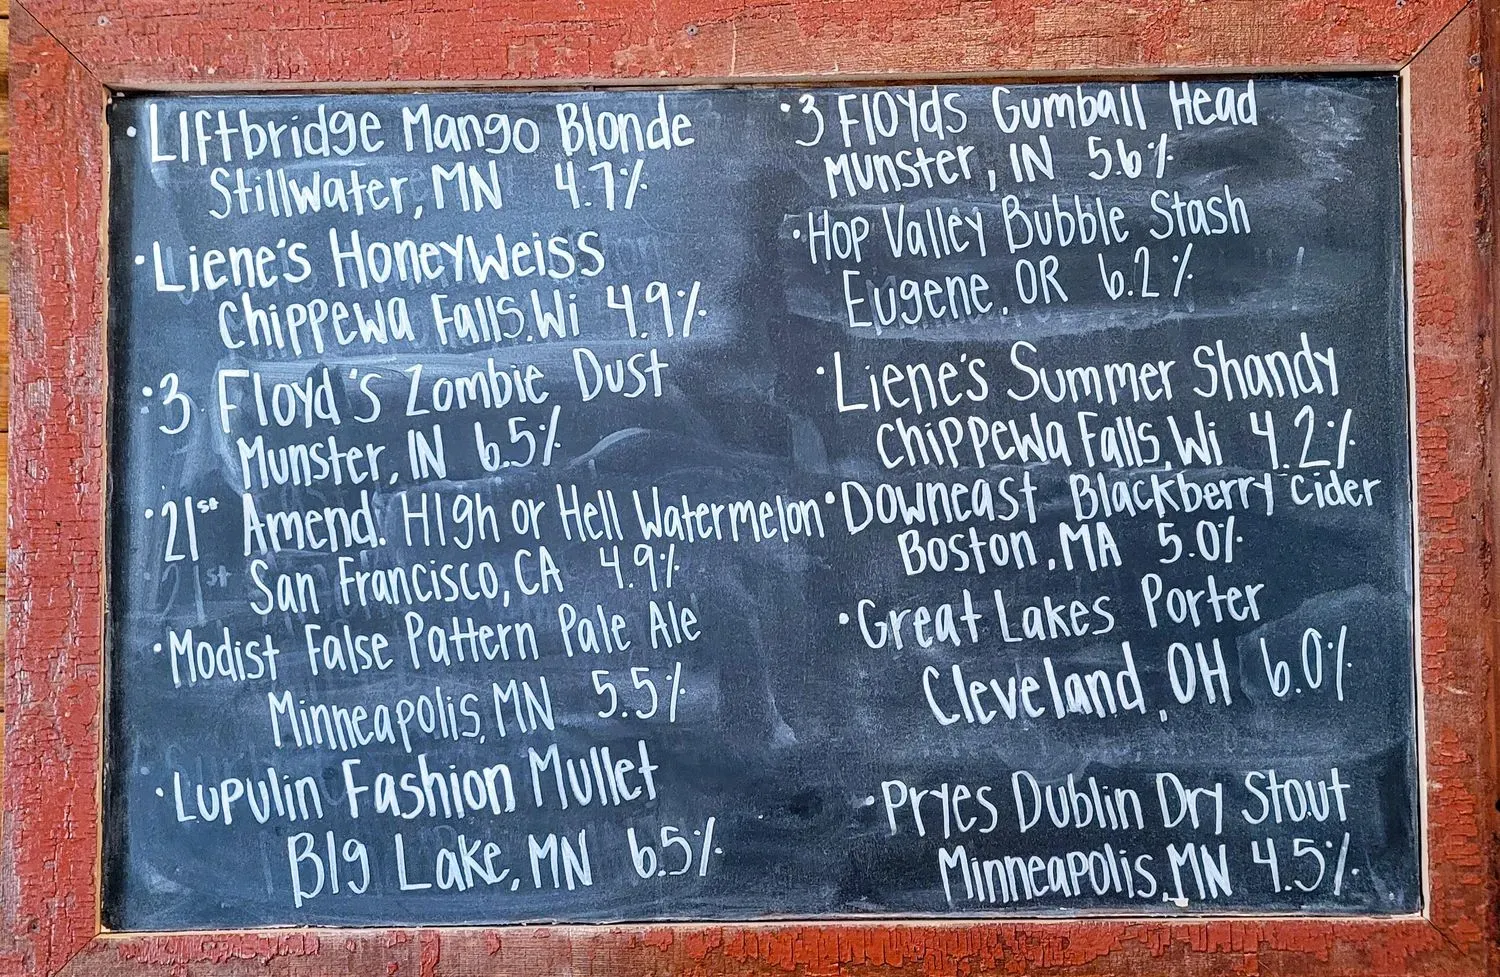 • Liftbridge Mango Blonde
Stillwater, MN 4.7%
• Liene's Honeyweiss
Chippewa Falls, Wi 4.9%
• 3 Floyd's Zombie Dust
Munster, IN 6.5%
• 21st Amend. High or Hell Watermelon
San Francisco, CA 4.9%
• Modist False Pattern Pale Ale
Minneapolis, MN 5.5%
• Lupulin Fashion Mullet
Big Lake, MN 6.5%
• 3 Floyds Gumball Head
Munster, IN 5.6%
• Hop Valley Bubble Stash
Eugene, OR 6.2%
• Liene's Summer Shandy
Chippewa Falls, Wi 4.2%
• Downeast Blackberry Cider
Boston, MA 5.0%
• Great Lakes Porter
Cleveland, OH 6.0%
• Pryes Dublin Dry Stout
Minneapolis, MN 4.5%